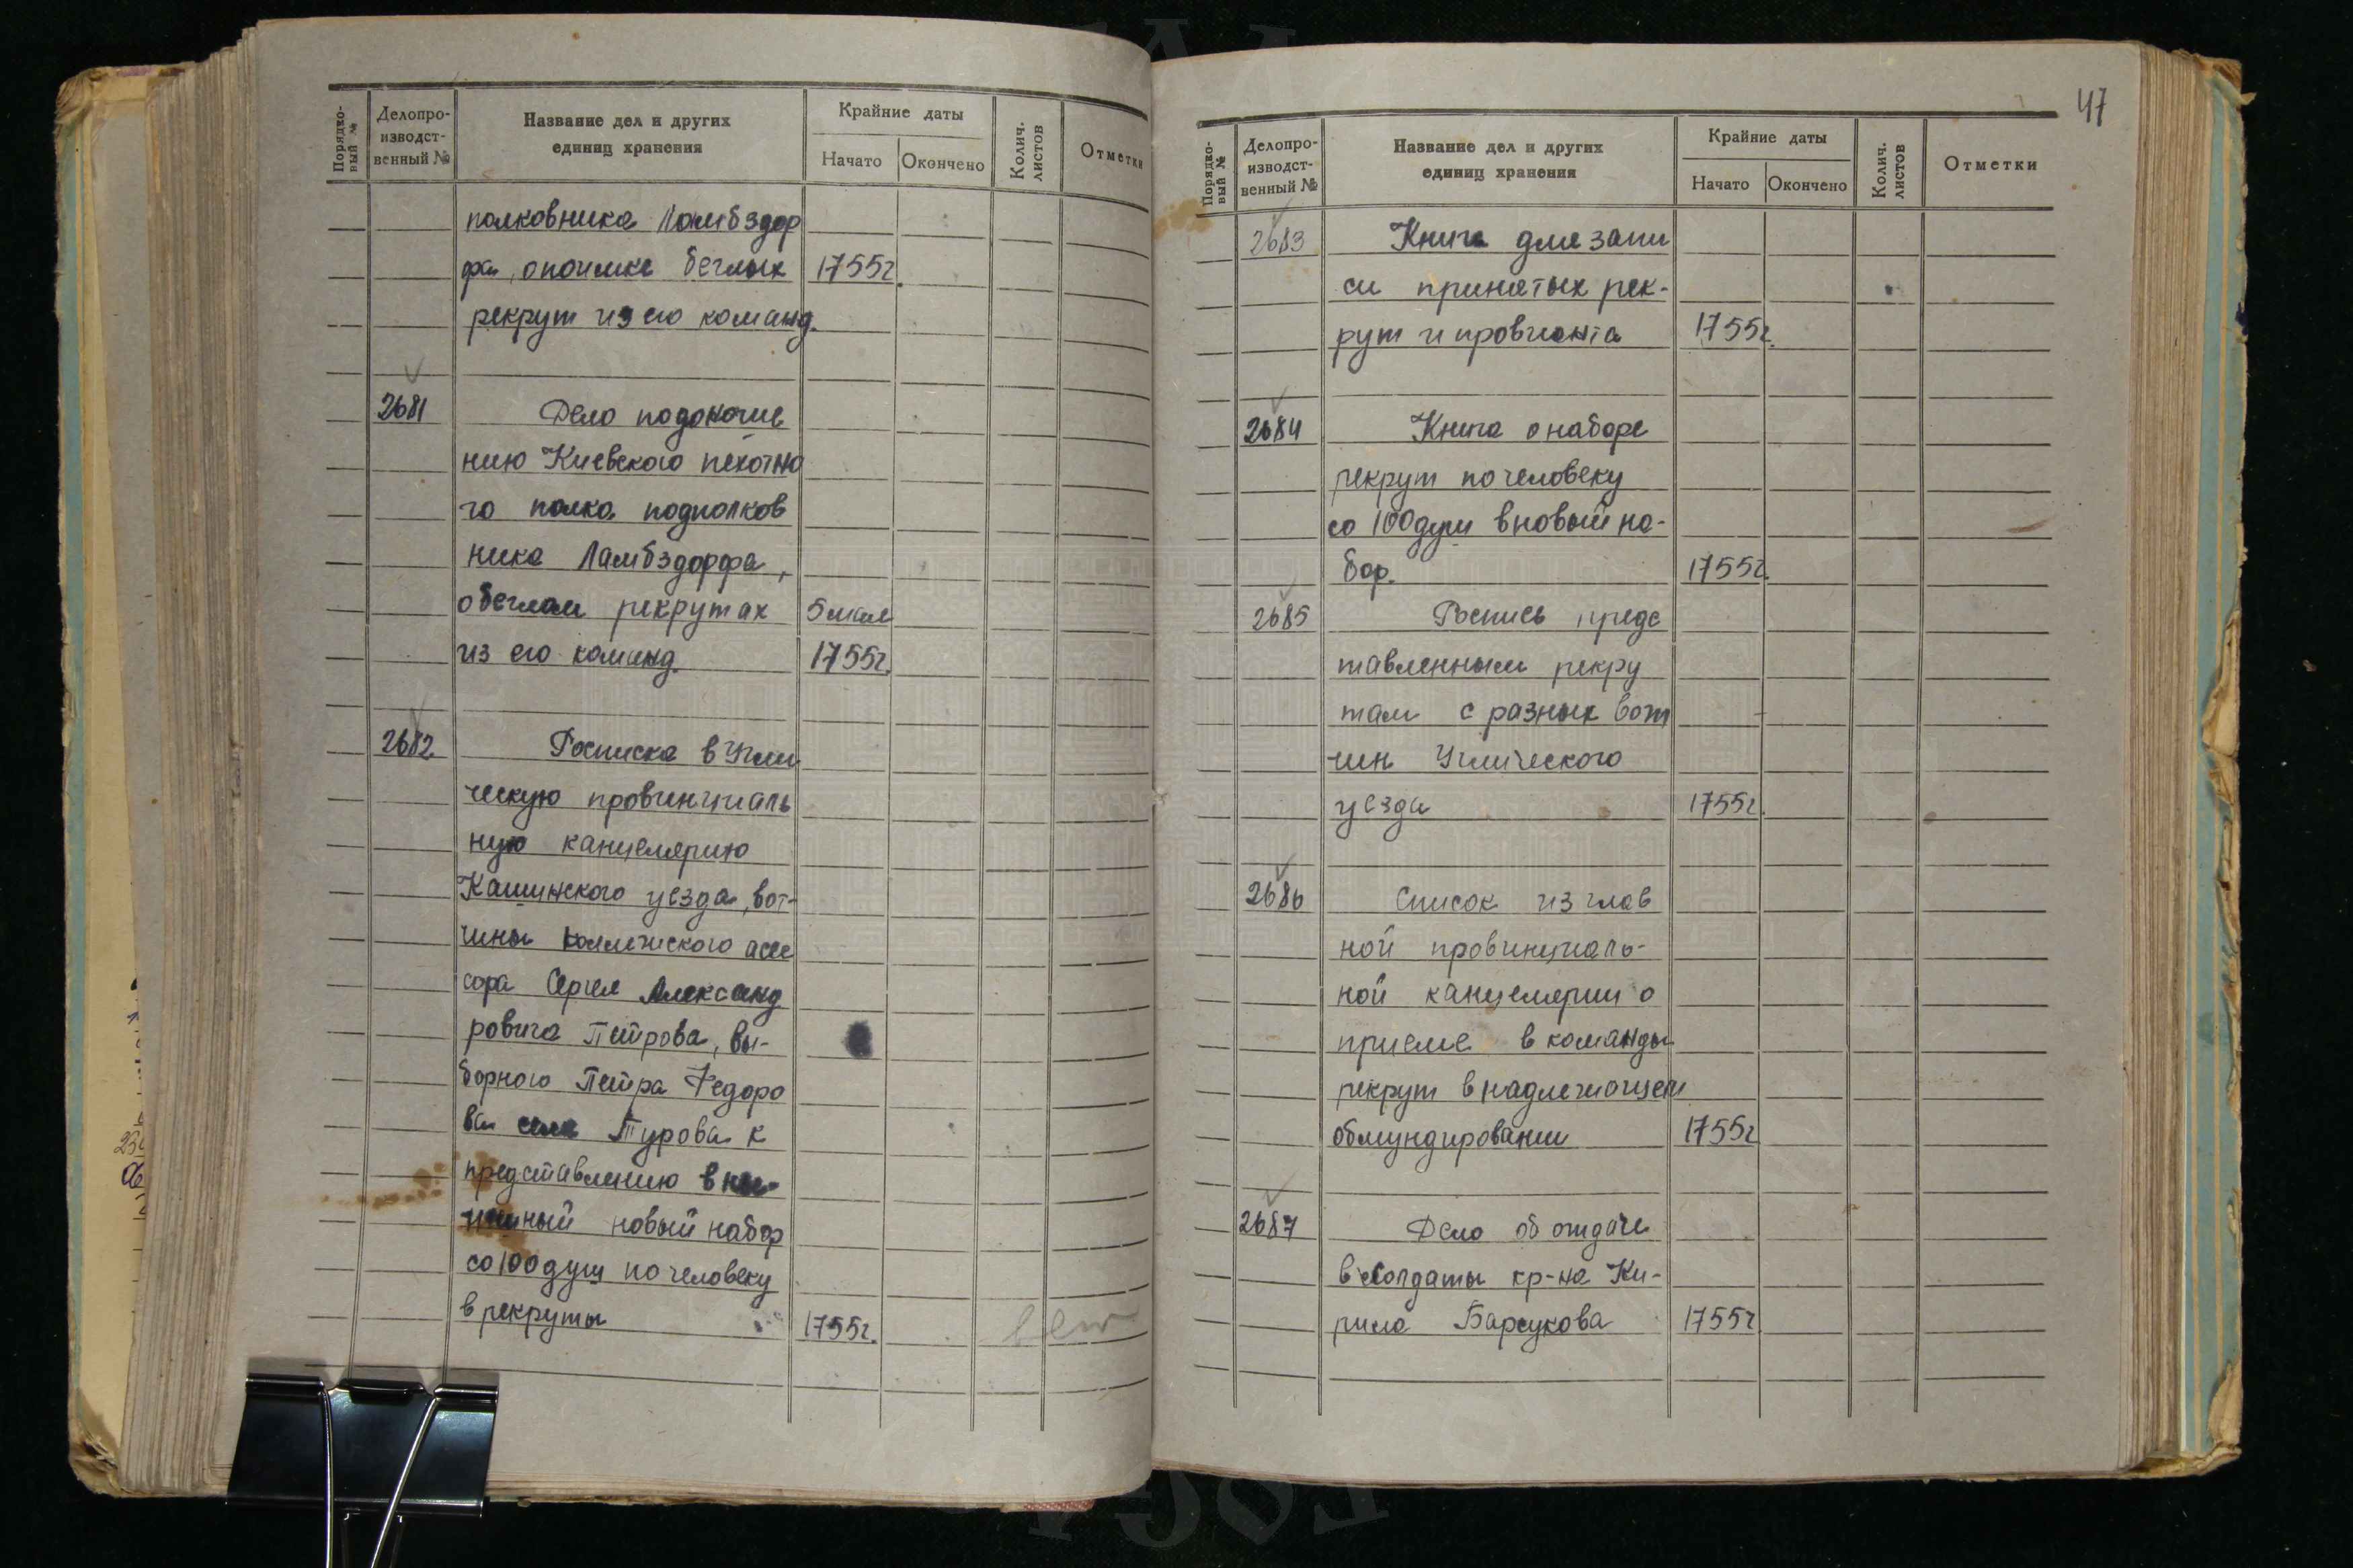 Порядко-
вый №
Делопро-
изводст-
венный №
Название дел и других
единиц хранения
Крайние даты
Начато
Окончено
Колич.
листов
Отметки
полковника Ламбздор
фа, о поимке беглых 1755г.
рекрут из его команд.
2681 Дело по доноше
нию Киевского пехотно
го полка подполков
ника Ламбздорфа,
о беглом рекрутах 5 мая
из его команд. 1755г.
2682 Росписка в Угли
ческую провинциаль
ную канцелярию
Кашинского уезда, вот-
чины коллежского асее
сора Сергея Александ
ровича Петрова, вы-
борного Петра Федоро
ва села Турова к
представлению в ны-
нешный новый набор
со 100 душ по человеку
в рекруты 1755г.
47
Порядко-
вый №
Делопро-
изводст-
венный №
Название дел и других
единиц хранения
Крайние даты
Начато
Окончено
Колич.
листов
Отметки
2683 Книга для запи
си принятых рек-
рут и провианта 1755г.
2684 Книга о наборе
рекрут по человеку
со 100 душ в новый на-
бор. 1755г.
2685 Роспись предс
тавленным рекру
там с разных вот
чин Углического
уезда 1755г.
2686 Список из глав
ной провинциаль-
ной канцелярии о
приеме в команды
рекрут в надлежащем
обмундировании 1755г
2687 Дело об отдаче
в солдаты кр-на Ки-
рила Барсукова 1755г